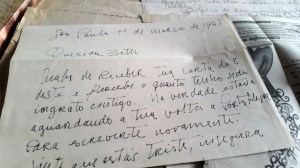 São Paulo 11 de março de 1965
Querida
Acabo de receber tua carta de 8
deste e percebo o quanto tenho sido
ingrato contigo. Na verdade estava
aguardando a tua volta a Porto Alegre
para escrever-te novamente.
que estás triste, insegura,